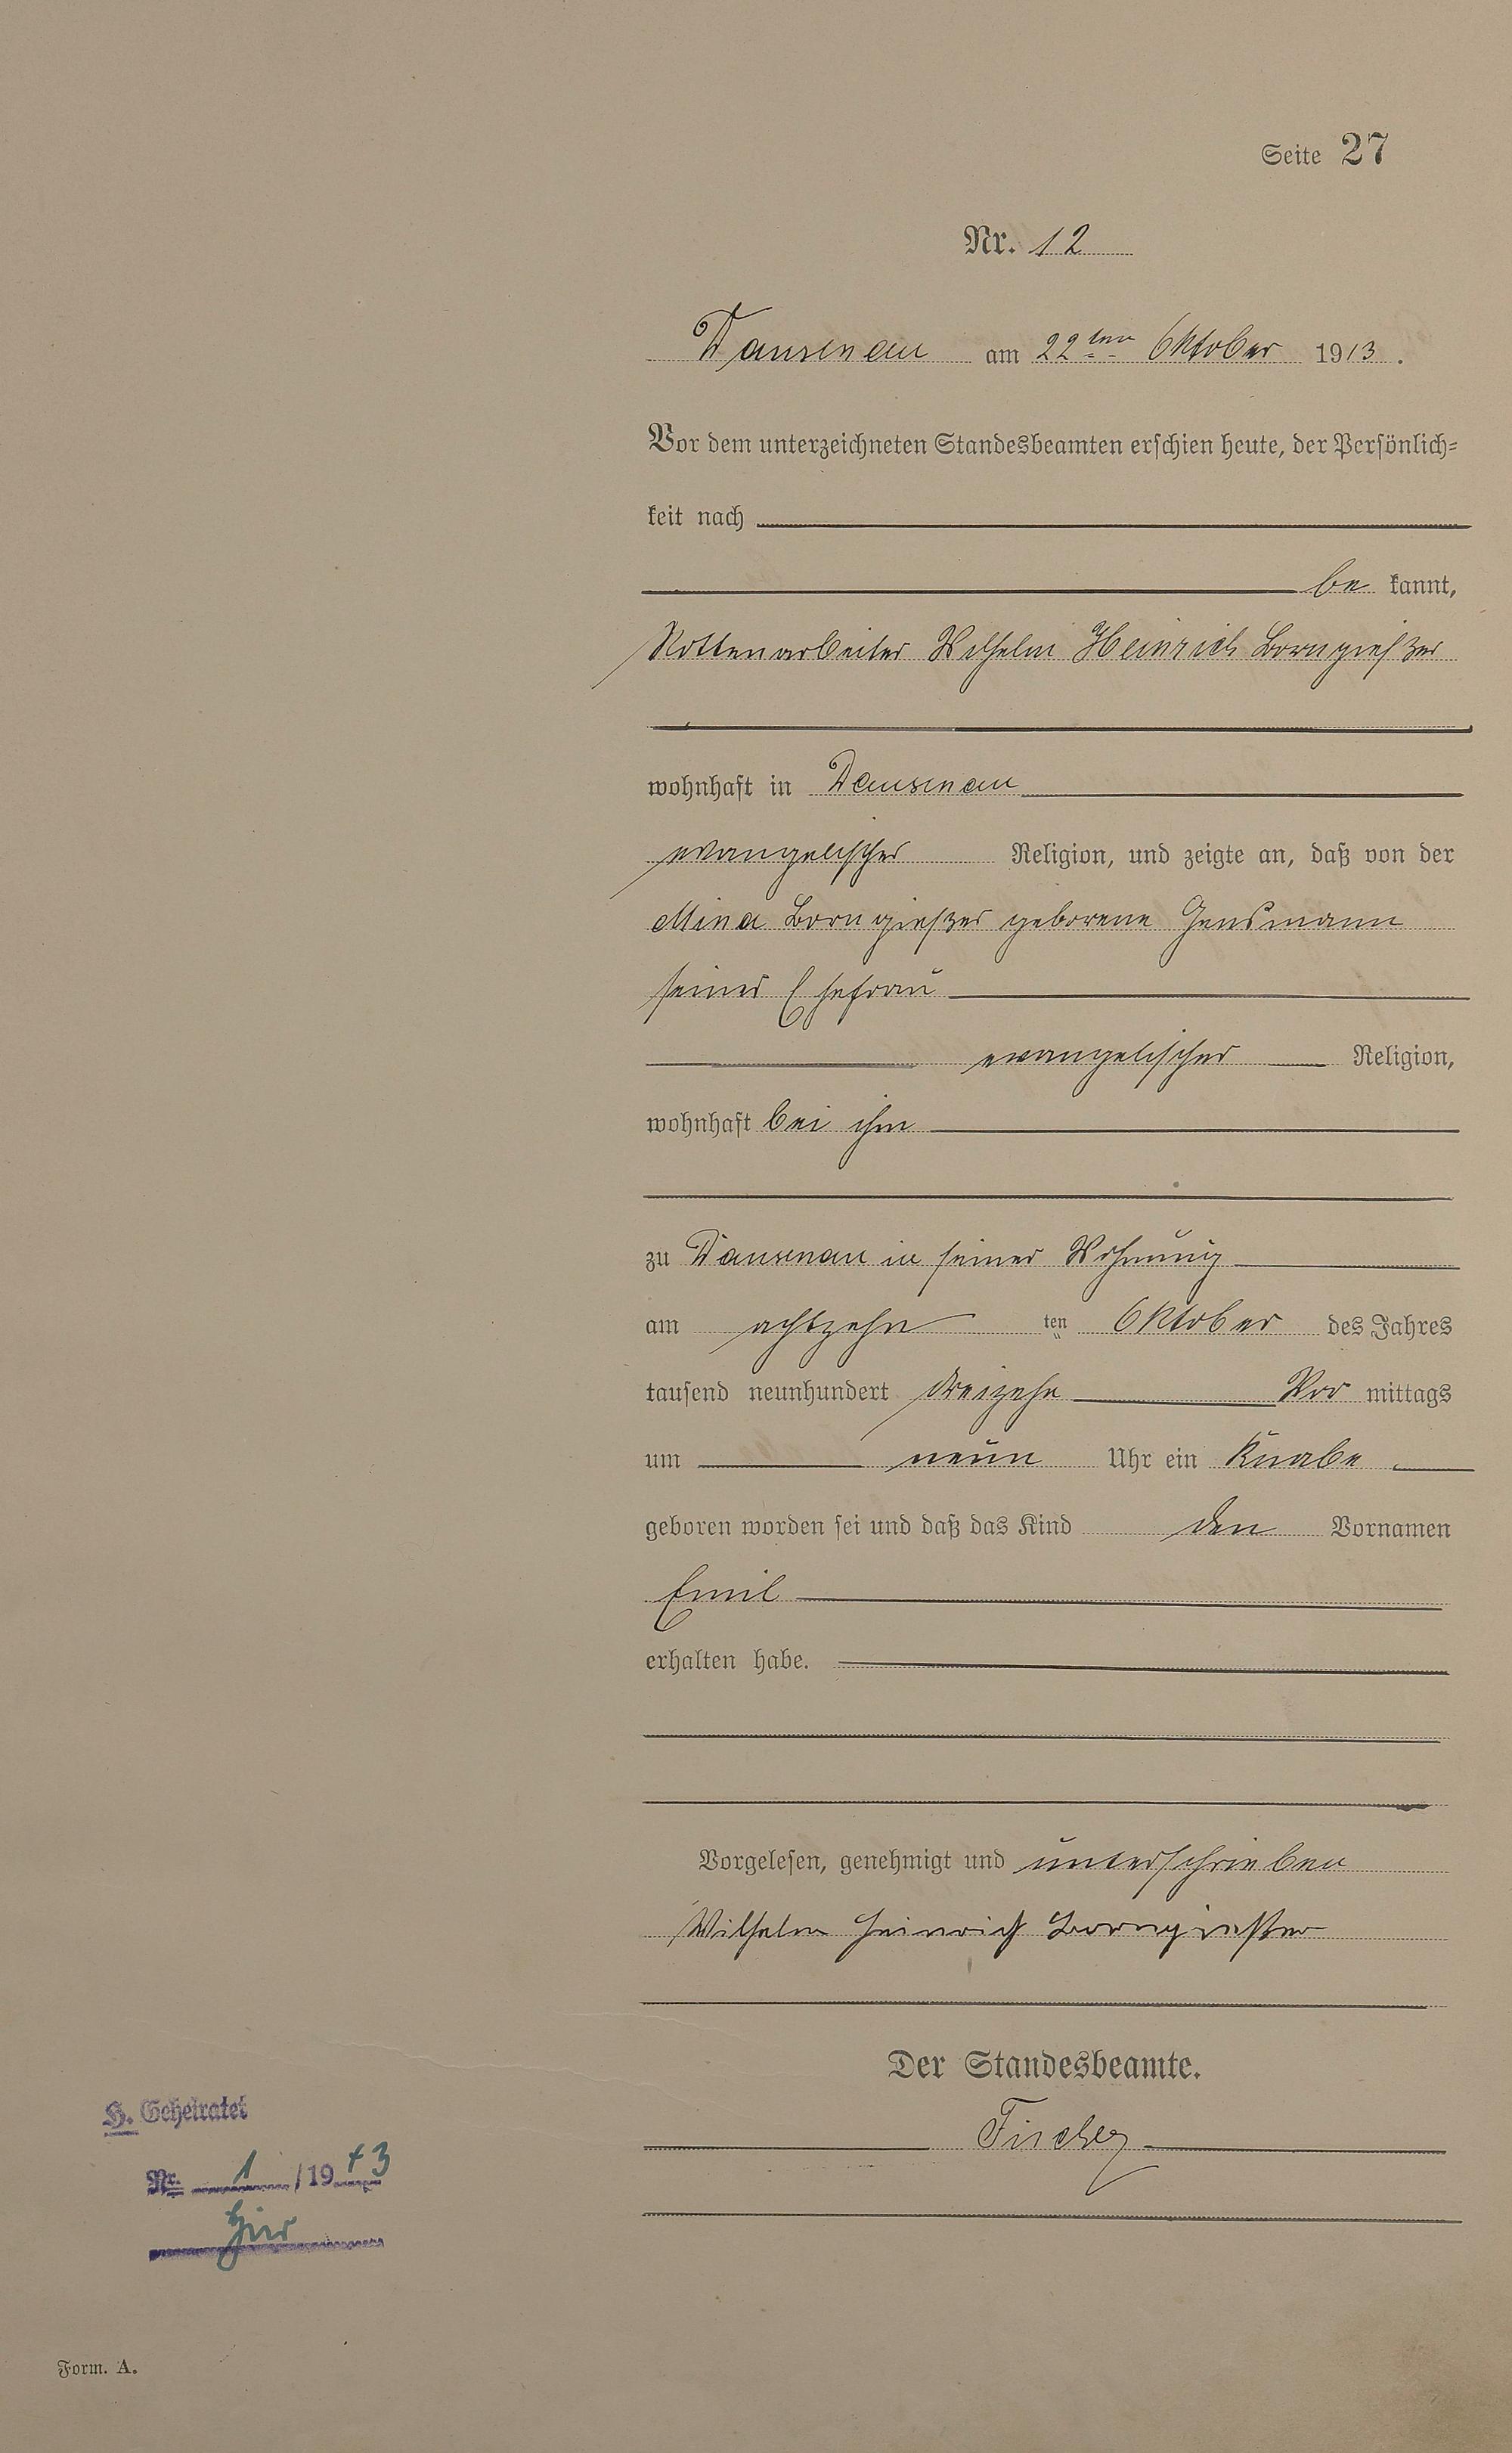 Seite 27
Nr. 12
Dausenau am 22ten Oktober 1913.
Vor dem unterzeichneten Standesbeamten erschien heute, der Persönlich=
keit nach
be kannt,
Rottenarbeiter Wilhelm Heinrich Borngießer
wohnhaft in Dausenau
evangelischer Religion, und zeigte an, daß von der
Mina Borngießer geborene Gensmann
seiner Ehefrau
evangelischer Religion,
wohnhaft bei ihm
zu Dausenau in seiner Wohnung
am achtzehn ten Oktober des Jahres
tausend neunhundert dreizehn Vor mittags
um neun Uhr ein Knabe
geboren worden sei und daß das Kind den Vornamen
Emil
erhalten habe.
Vorgelesen, genehmigt und unterschrieben
Wilhelm Heinrich Borngießer
Der Standesbeamte.
Fischer
H. Geheiratet
Nr. 1 /1943
hier
Form. A.